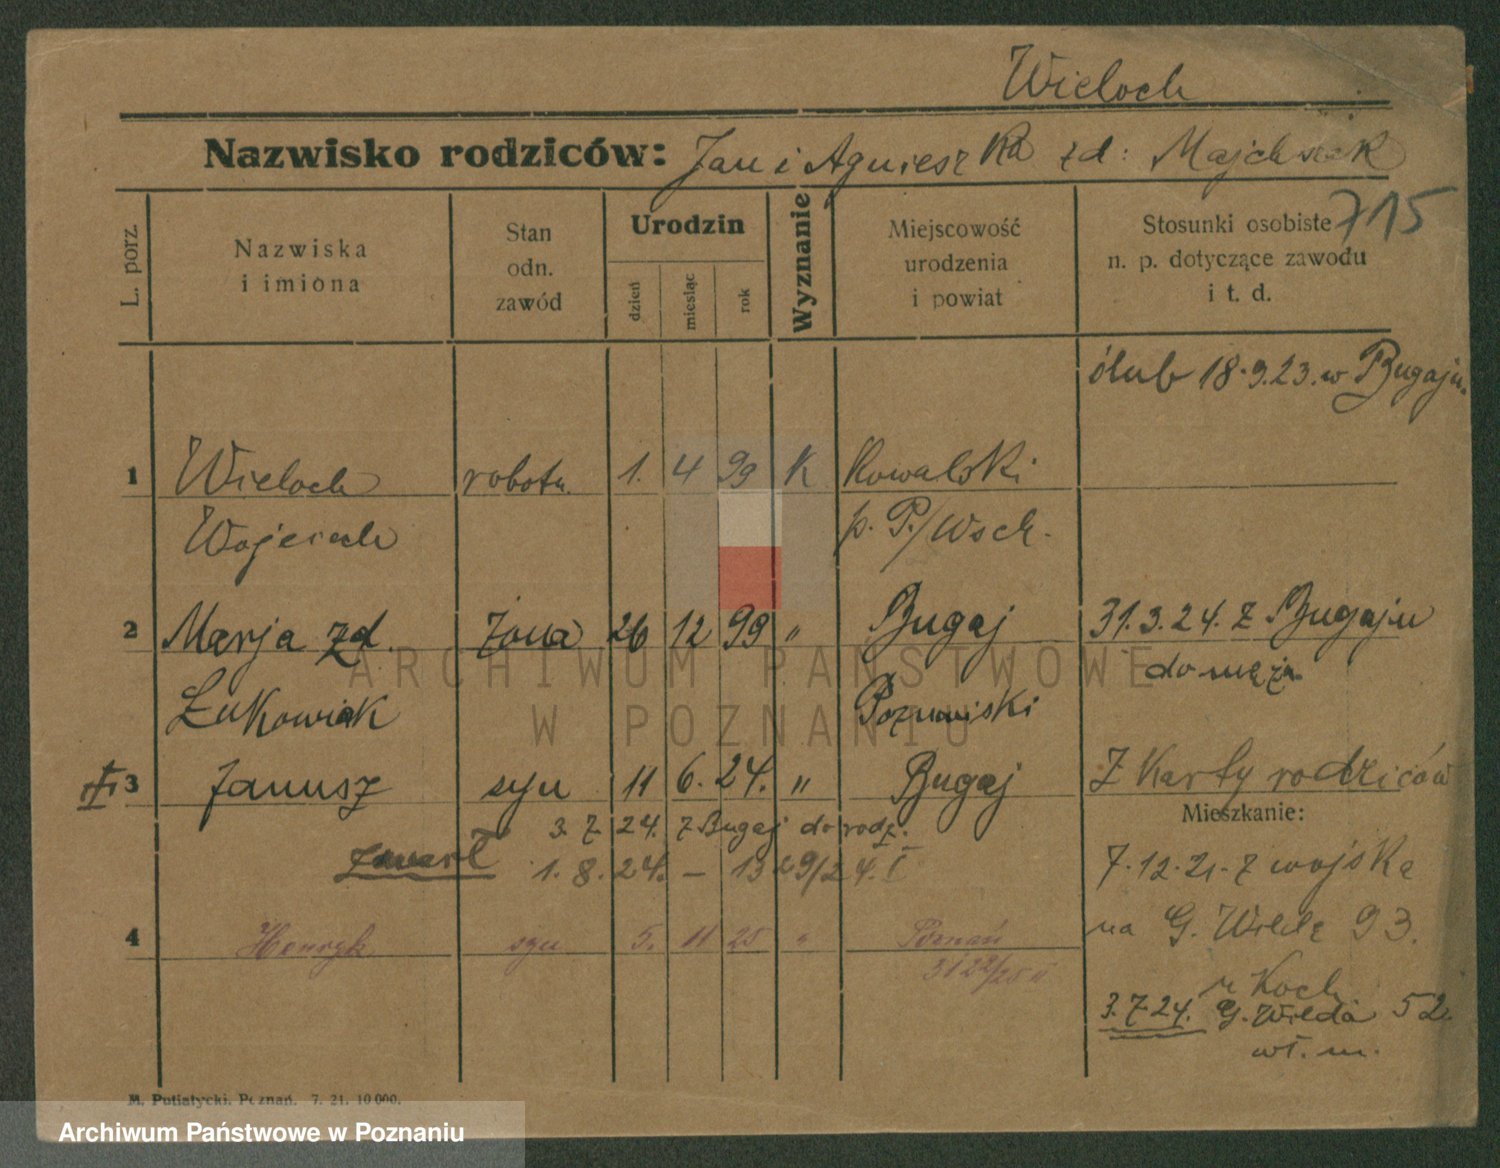 Wieloch
Nazwisko rodziców: Jan i Agnieszka zd: Majchrzak
715
L. porz.
Nazwiska
i imiona
Stan
odn.
zawód
Urodzin
dzień
miesiąc
rok
Wyznanie
Miejscowość
urodzenia
i powiat
Stosunki osobiste
n. p. dotyczące zawodu
i t. d.
ślub 18.9.23. w Bugaju.
1 Wieloch robotn. 1. 4 99 K Kowalski
Wojciech p. P./Wsch.
2 Marja zd. żona 26 12 99 " Bugaj 31.3.24. z Bugaju
do męża.
Łukowiak Poznański
3 Janusz syn 11 6. 24. " Bugaj Z Karty rodziców
Mieszkanie:
3. 7. 24. z Bugaj do rodz.
zmarł 1. 8. 24. – 1329/24. I
7.12.21. z wojska
4 Henryk syn 5. 11 25 " Poznań
na G. Wildę 93.
3122/25 II
u Koch
3.7.24. G. Wilda 52
wł. m.
M. Putiatycki, Poznań. 7. 21. 10 000.
ARCHIWUM PAŃSTWOWE
W POZNANIU
Archiwum Państwowe w Poznaniu